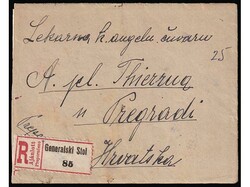 Lekarna k angelu čuvaru
25
A. pl. Thierry
u Pregradi
Hrvatska
R
Generalski Stol
85